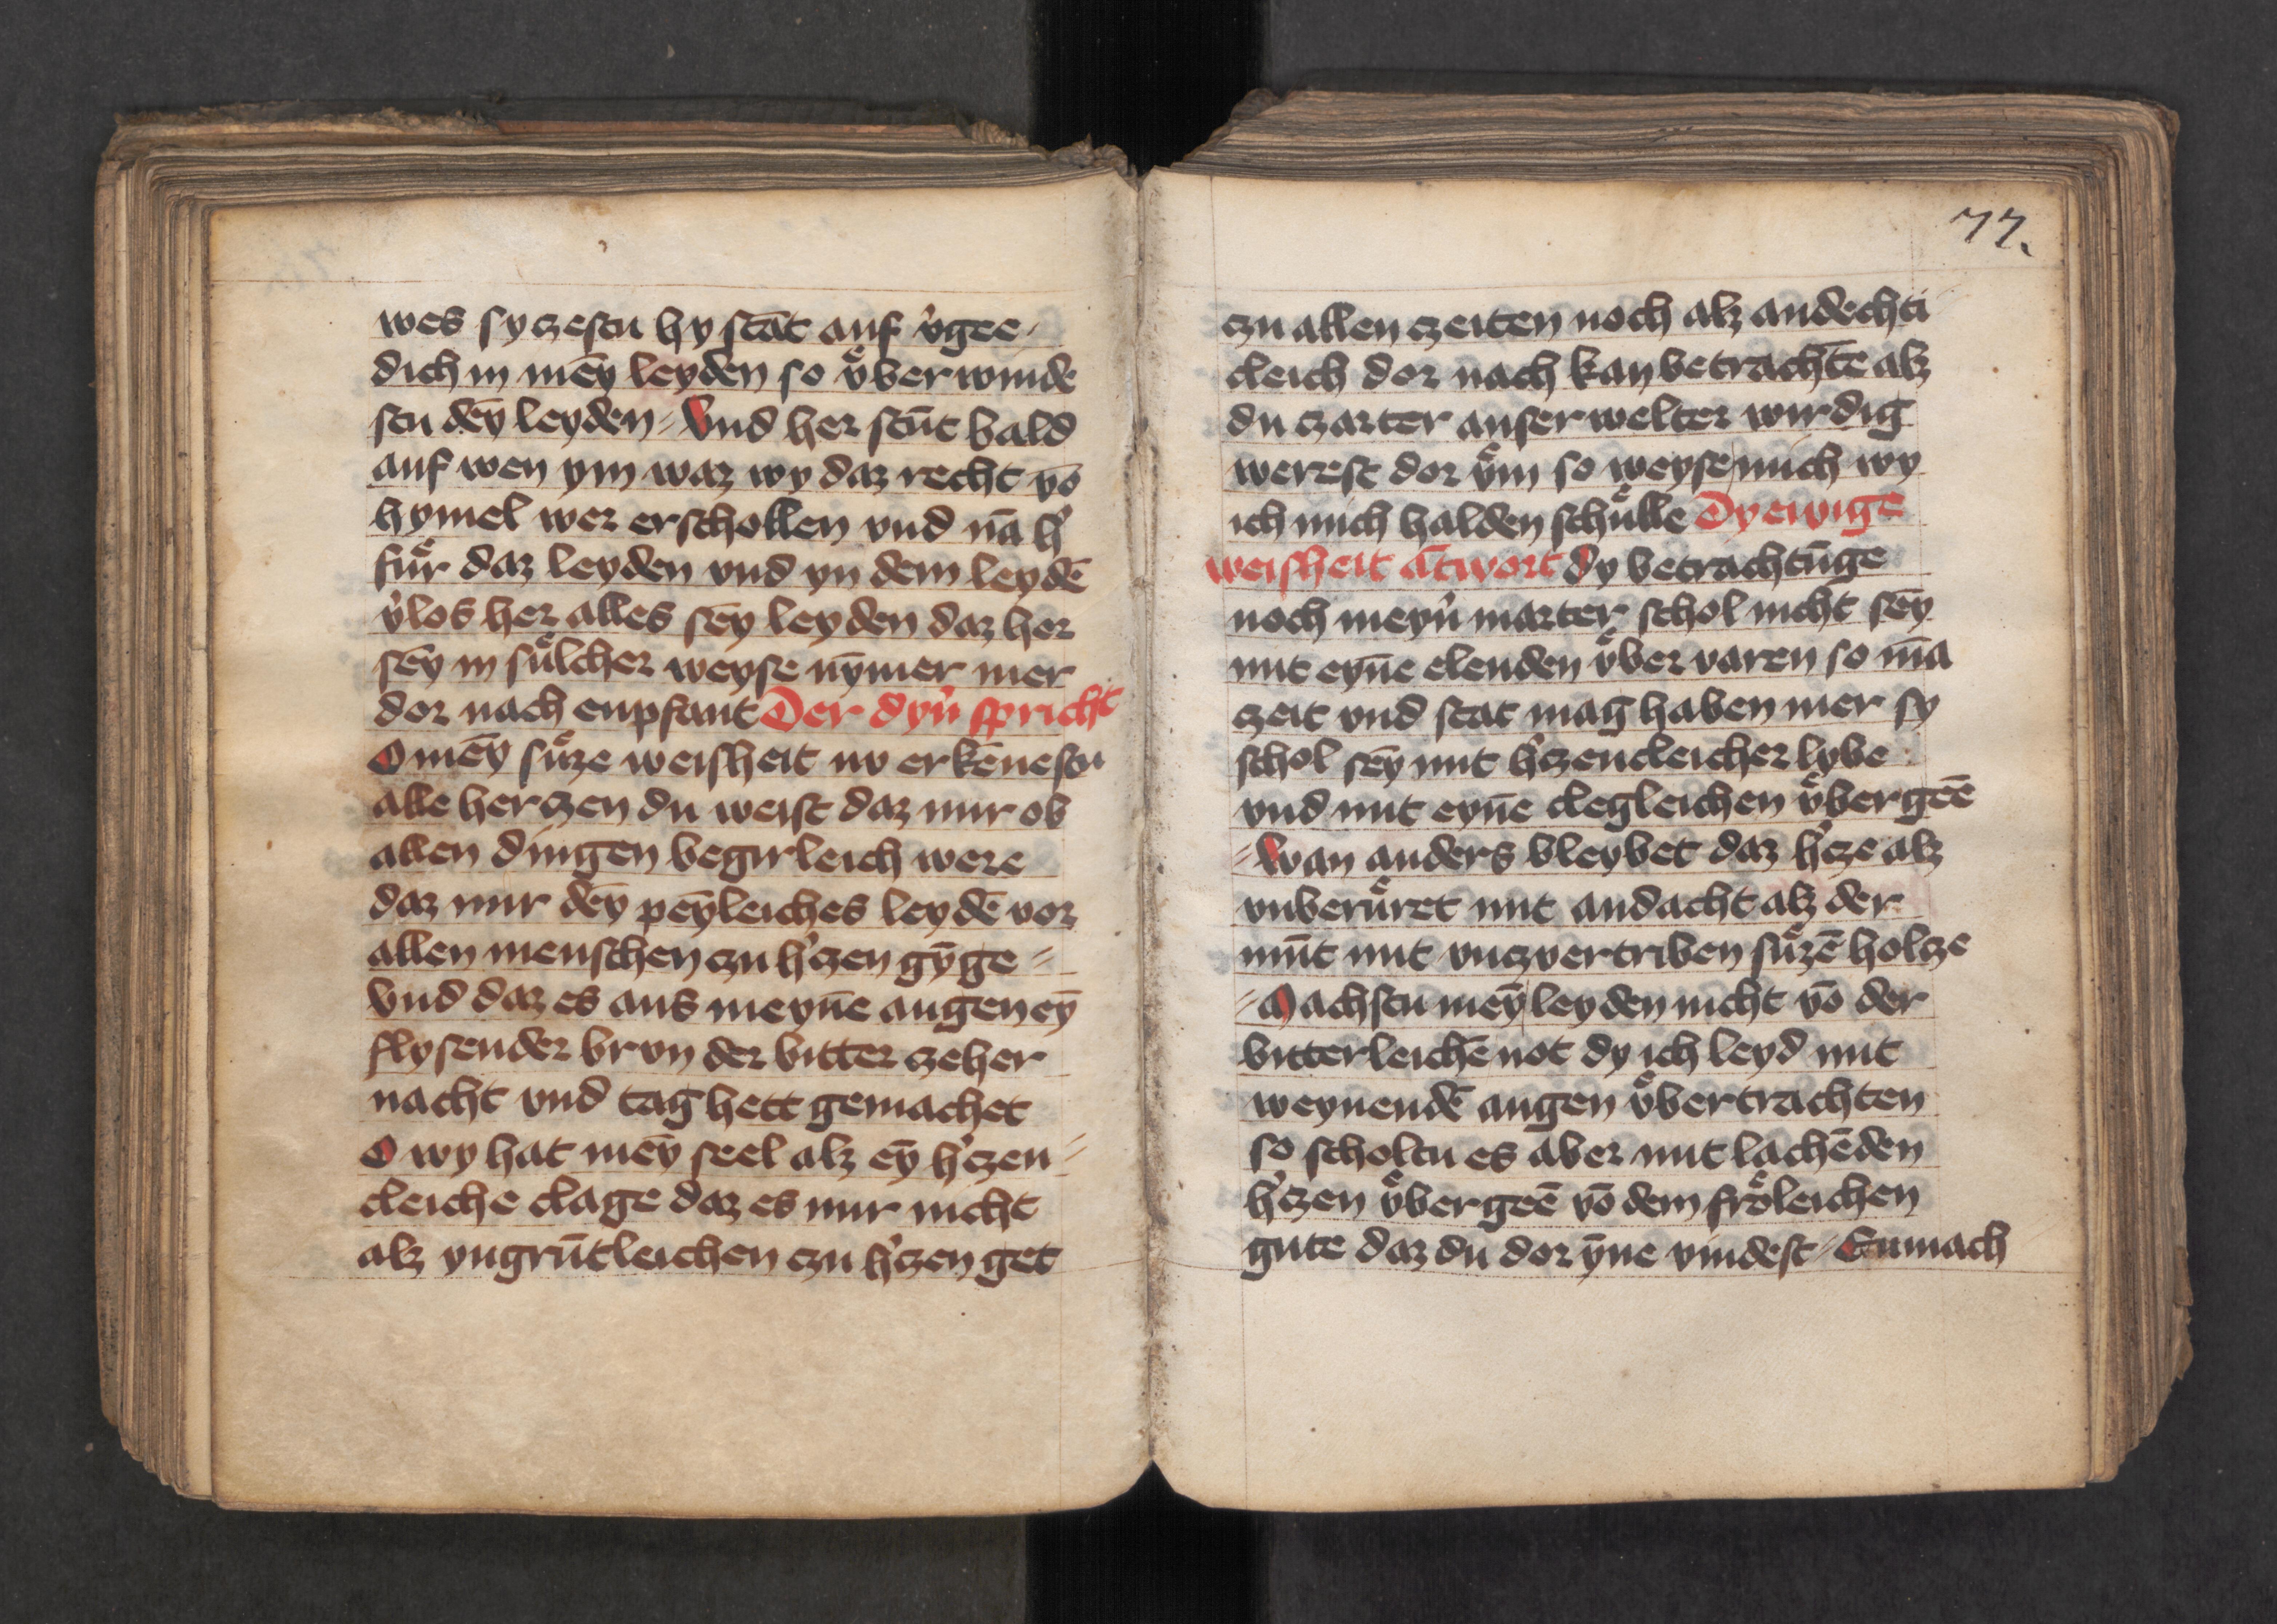 wes syczestu hy stāt auf v̓gee⸗
dich in mēy leyden so v̈ber winde
stu dēy leyden ⸗ Vnd her stūt bald
auf wen ym waz wy daz recht vō
hymel wer erschollen vnd nā h̓
fuͤr daz leyden vnd yn dem leydē
v̓los her alles sēy leyden daz her
sēy in suͤlcher weyse nȳmer mer
dor nach enpfant Der dyn̓ spricht
O mēy suͤze weisheit nv erkēnestu
alle herczen du weist daz mir ob
allen dingen begirleich were
daz mir dēy pēyleiches leydē vor
allen menschen czu h̓czen gȳge ⸗
Vnd daz es aus meyne̅ augen eȳ
flysender brvn der bitter czeher
nacht vnd tag hett gemachet
O wy hat mēy seel alz eȳ h̓czen ⸗
cleiche clage daz es mir nicht
alz yngrūtleichen czu h̓czen get
77.
czu allen czeiten noch alz andechti
cleich dor nach kan betrachte̅ alz
du czarter auserwelter wirdig
werest dor vͤm so weyse mich wy
ich mich halden schuͤlle Dy ewige
weisheit ātwort dy betrachtūge
noch meyn̓ marter schol nicht sēy
mit eyne̅ elenden vͤber varen so mā
czeit vnd stat mag haben mer sy
schol sēy mit h̓czencleicher lybe
vnd mit eyne̅ clegleichen vͤbergeē
⸗ Wan anders bleybet daz h̓cze alz
vnberuͤret mit andacht alz der
mūt mit vnczvertriben suͤzē holcze
⸗ Machstu mēy leyden nicht vō der
bitterleichē not dy ich leyd mit
weynendē augen vͤbertrachten
so scholtu es aber mit lachēden
h̓czen vͤbergeē vō dem froͤleichen
gute daz du dor ȳne vindest ⸗ Enmach